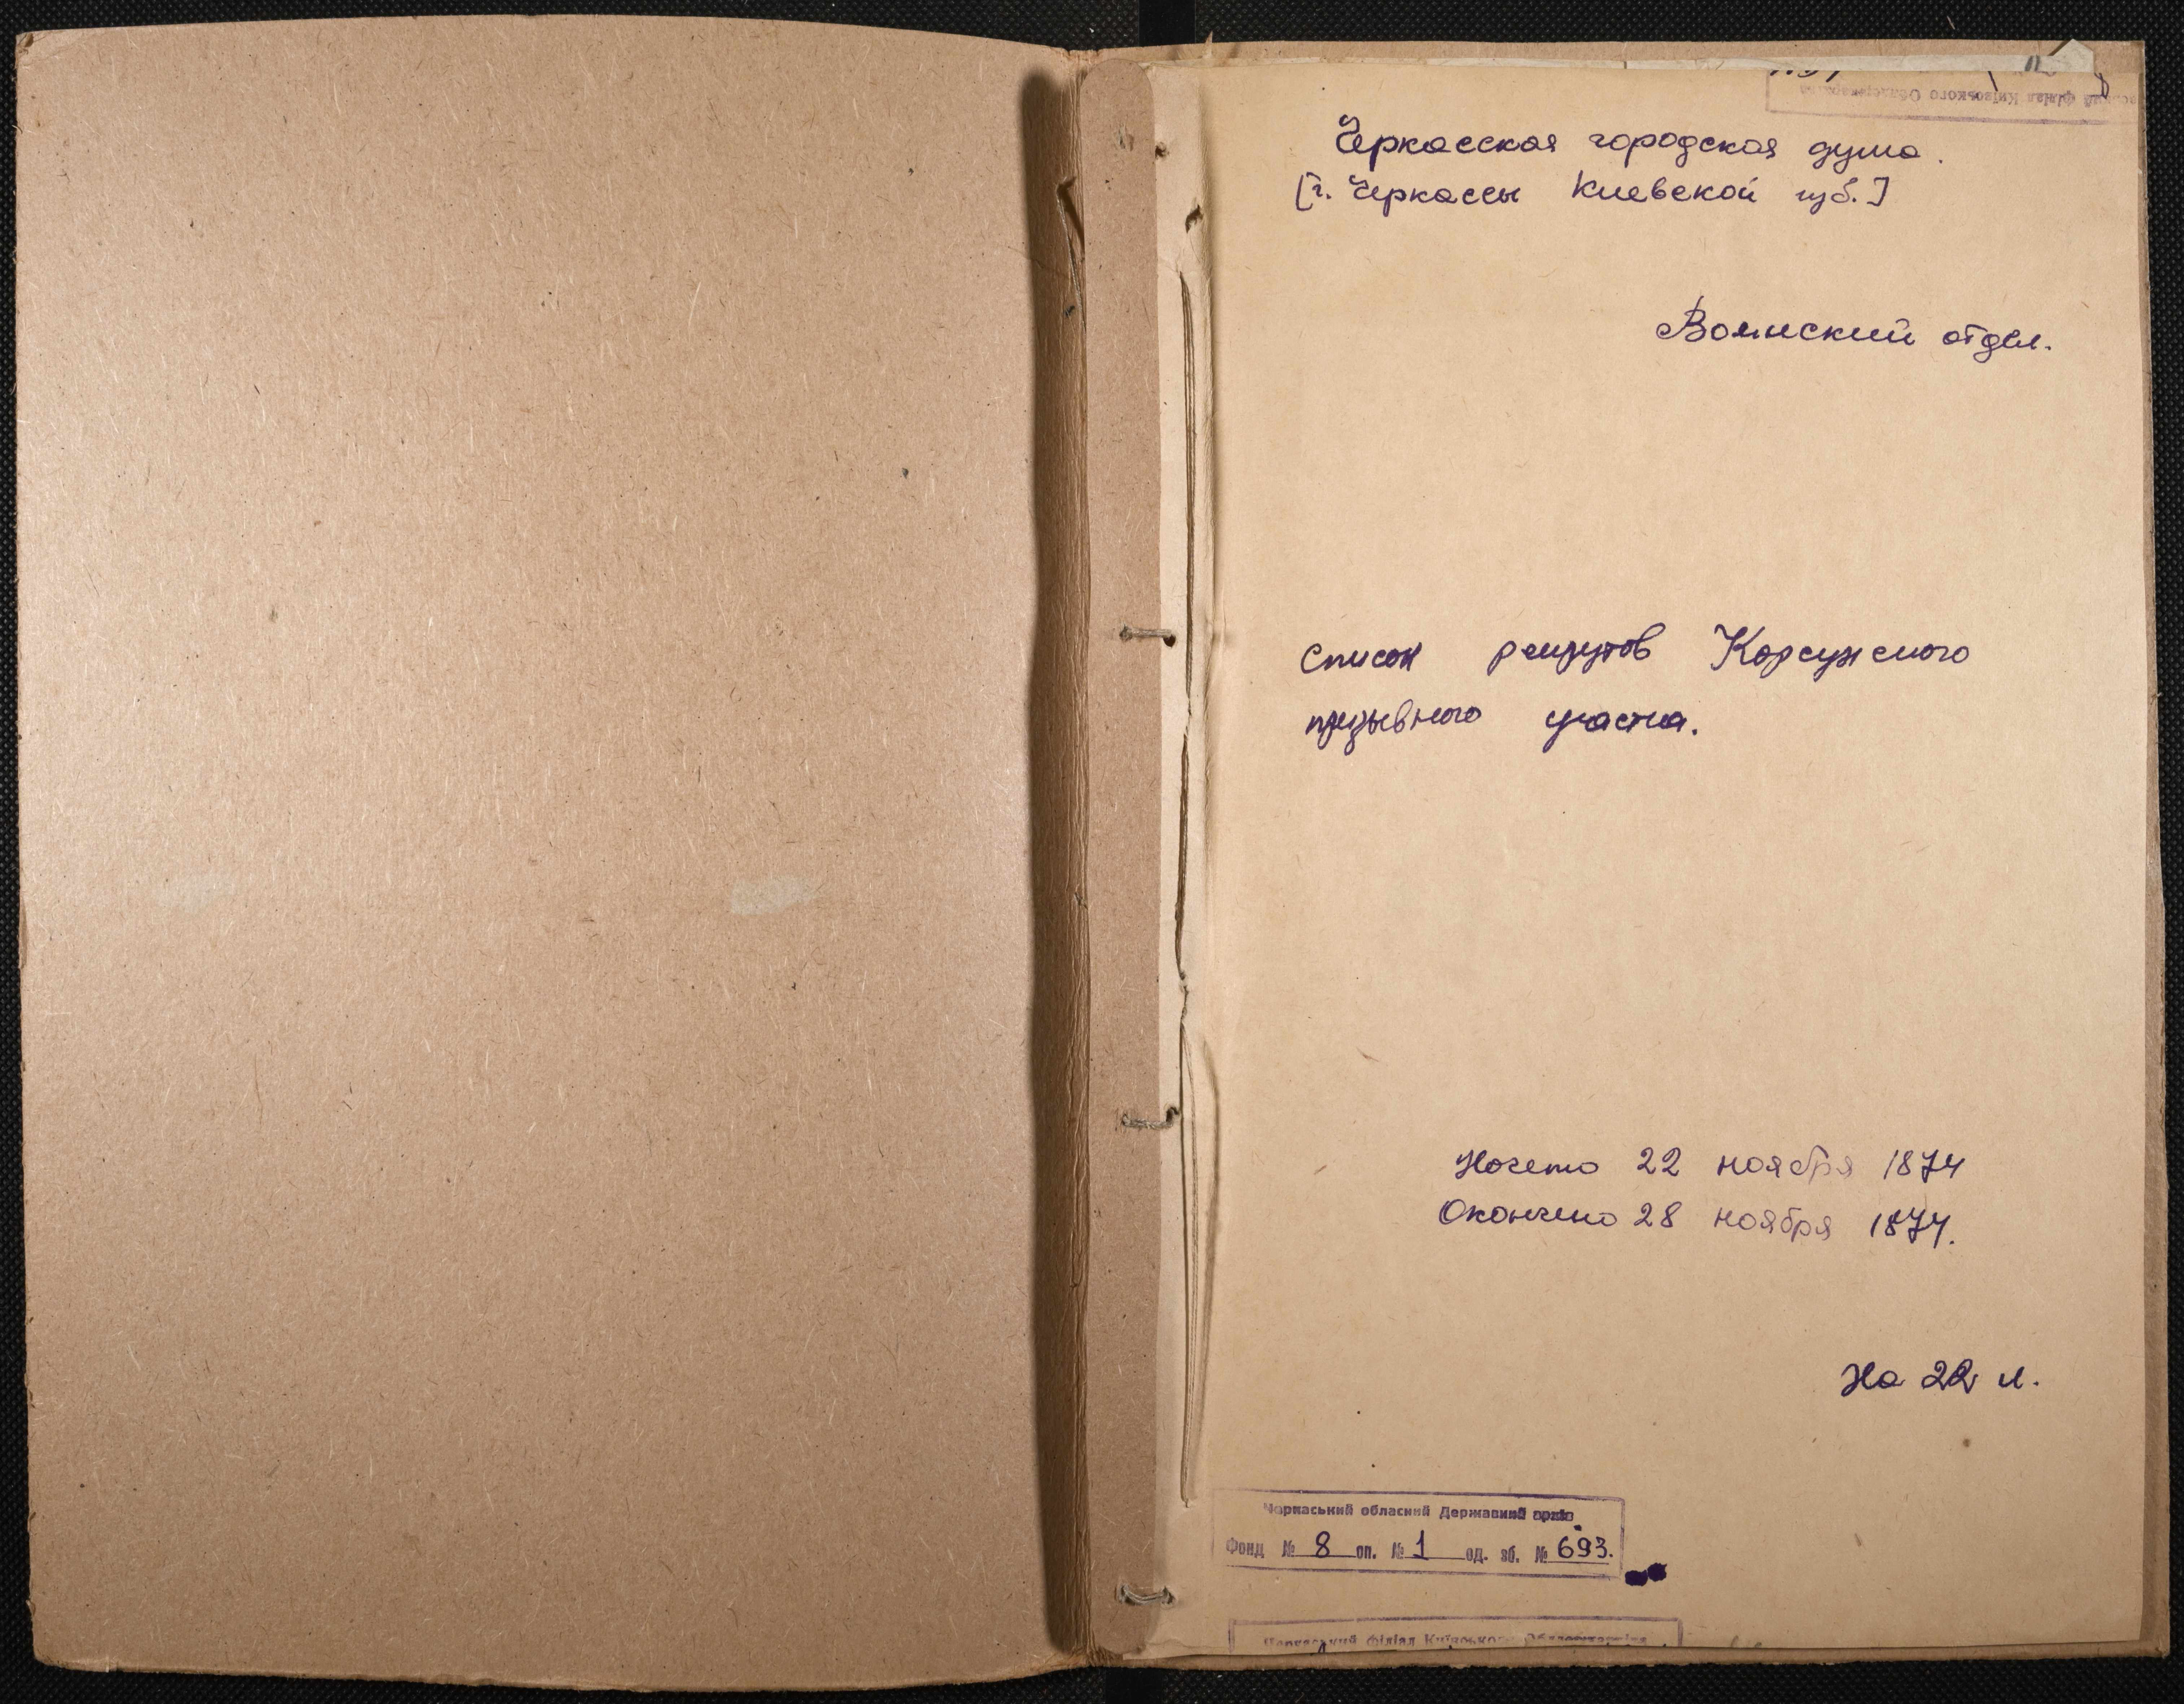 Черкасский філіал Київського Облдержархіва
Черкасская городская дума.
[г. Черкассы Киевской губ.]
Воинский отдел.
Список рекрутов Корсунского
призывного участка.
Начато 22 ноября 1874
Окончено 28 ноября 1874.
На 22 л.
Черкаський обласний Державний архів
Фонд № 8 оп. № 1 од. зб. № 693.
Черкаський філіал Київського Облдержархіва